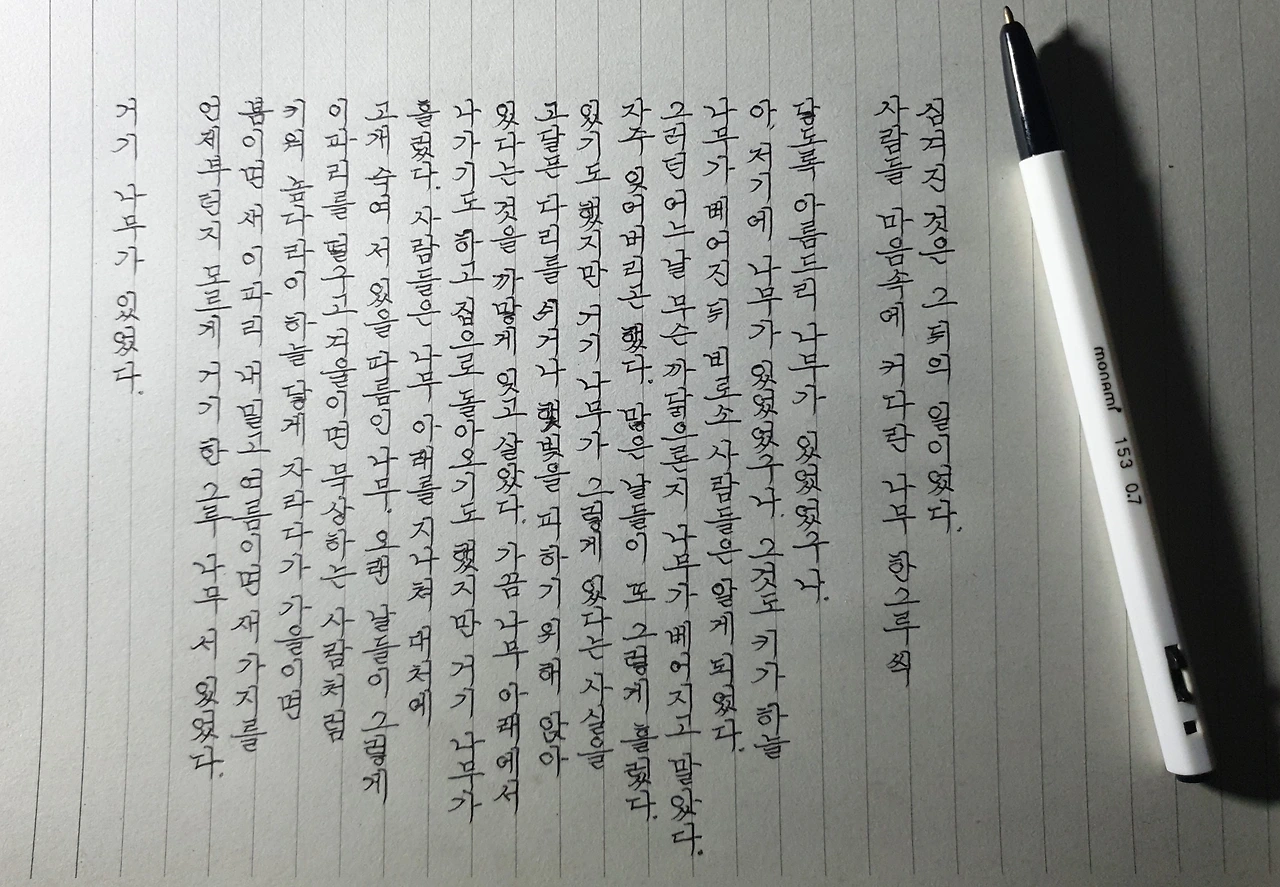 거기 나무가 있었다.
언제부턴지 모르게 거기 한 그루 나무 서 있었다.
봄이면 새 이파리 내밀고 여름이면 새 가지를
키워 높다라이 하늘 닿게 자라다가 가을이면
이파리를 떨구고 겨울이면 묵상하는 사람처럼
고개 숙여 저 있을 따름인 나무. 오랜 날들이 그렇게
흘렀다. 사람들은 나무 아래를 지나쳐 대처에
나가기도 하고 집으로 돌아오기도 했지만 거기 나무가
있다는 것을 까맣게 잊고 살았다. 가끔 나무 아래에서
고달픈 다리를 쉬거나 햇빛을 피하기 위해 앉아
있기도 했지만 거기 나무가 그렇게 있다는 사실을
자주 잊어버리곤 했다. 많은 날들이 또 그렇게 흘렀다.
그러던 어느 날 무슨 까닭으론지 나무가 베어지고 말았다.
나무가 베어진 뒤 비로소 사람들은 알게 되었다.
아, 저기에 나무가 있었었구나. 그것도 키가 하늘
닿도록 아름드리 나무가 있었었구나.
사람들 마음속에 커다란 나무 한 그루씩
심겨진 것은 그 뒤의 일이었다.
monami 153 0.7